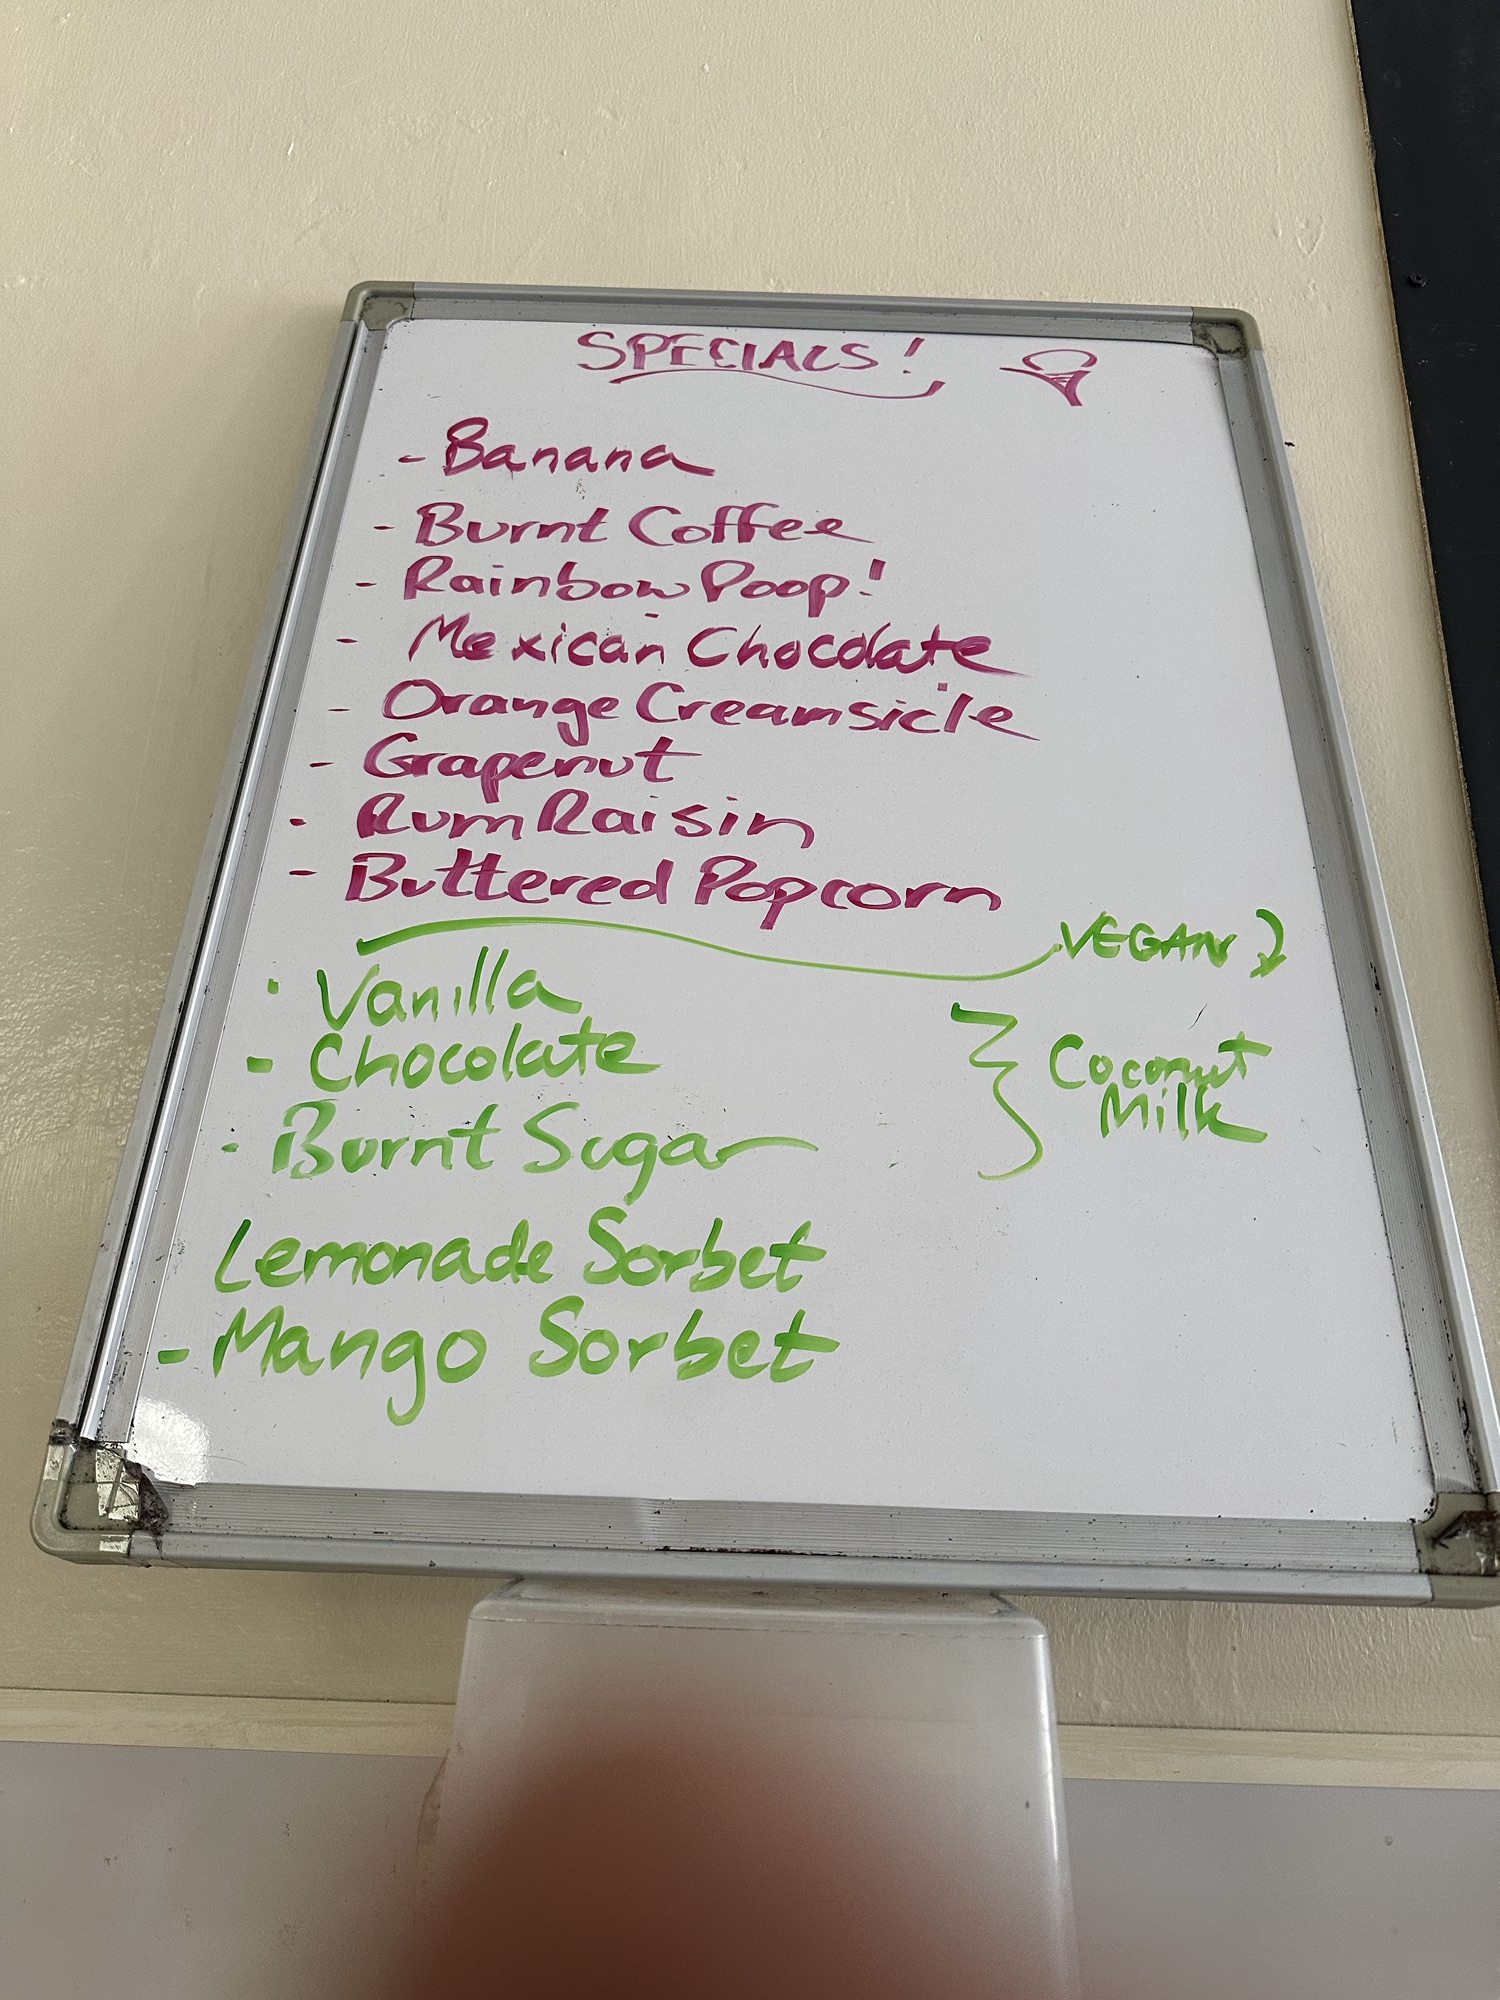 SPECIALS!
- Banana
- Burnt Coffee
- Rainbow Poop!
- Mexican Chocolate
- Orange Creamsicle
- Grapenut
- Rum Raisin
- Buttered Popcorn
VEGAN
- Vanilla
- Chocolate
- Burnt Sugar
Coconut
Milk
Lemonade Sorbet
- Mango Sorbet